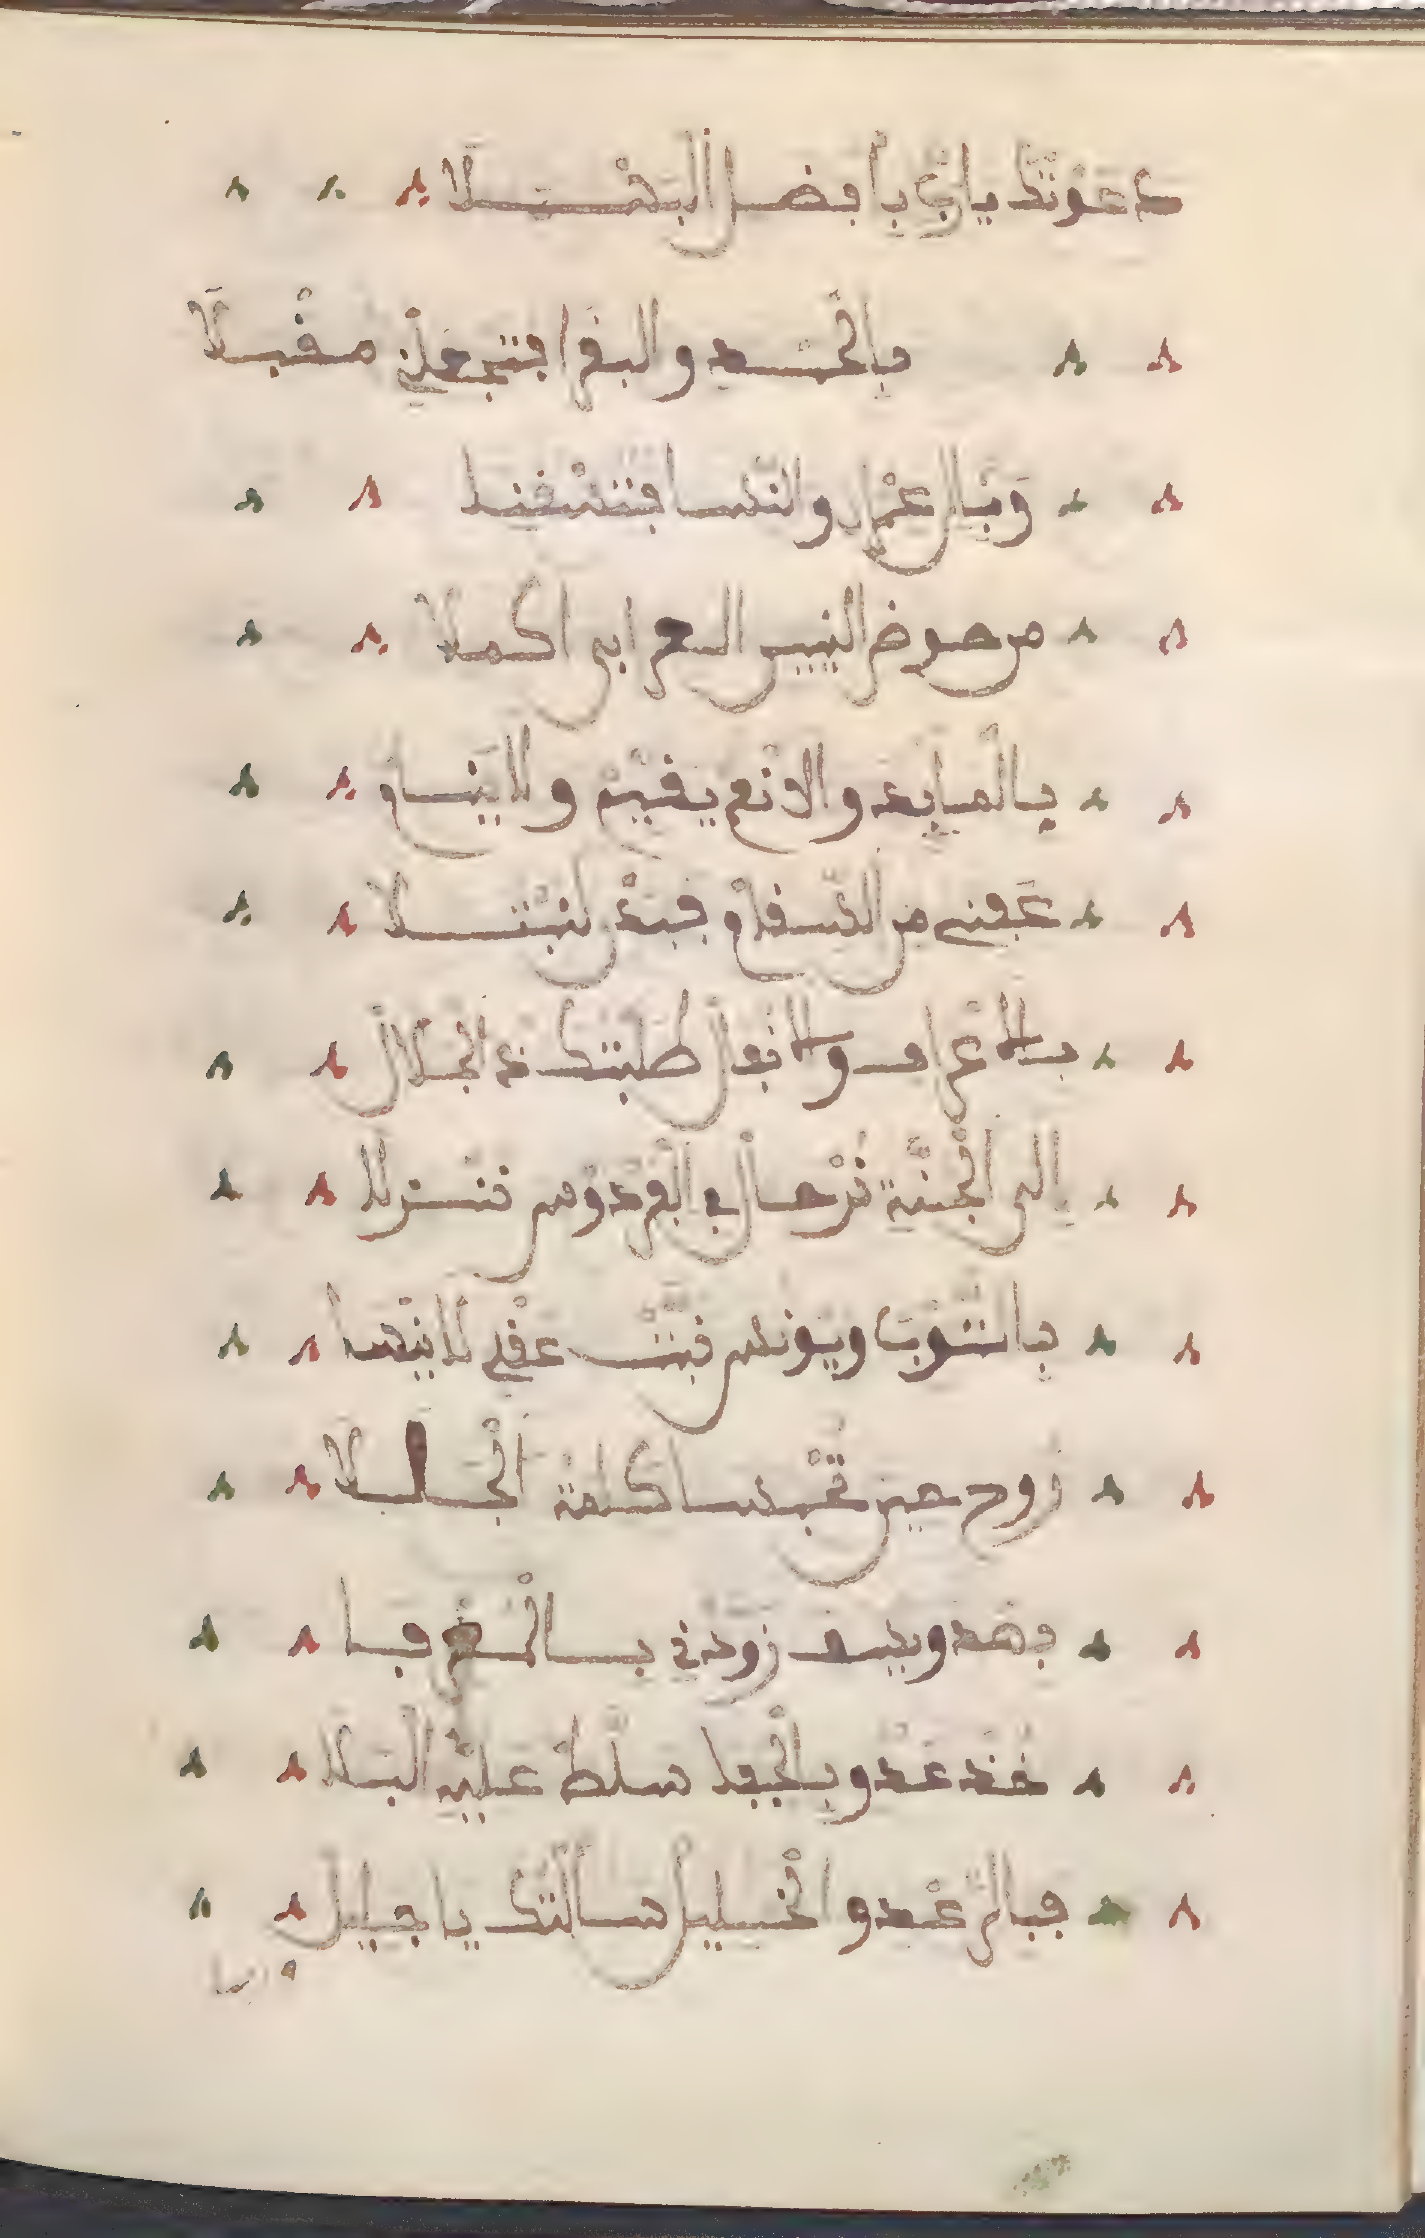 دعوتك ياربي بأفضل البسملا
بالحمد والبقرا فتجعلن مقبلا
وبئال عمران والنسا فتشفينا
من حوض النبيين العربي اكملا
بالمايده والانعم يقيم ولاينساو
عفني من السقام فبدن لنبتلا
بالاعراف والانفال طلبتك ذالجلال
إلى الجنة نرحال في الفردوس ننزلا
بالتوبا ويونس فثبت عقلي لاينسا
روح حين تحبسا كلمة الجلالا
بهود ويسف زودني بالمغرفا
فند عدو بالجفا سلط عليه البلا
فبالرعد والخليل سألتك ياجليل